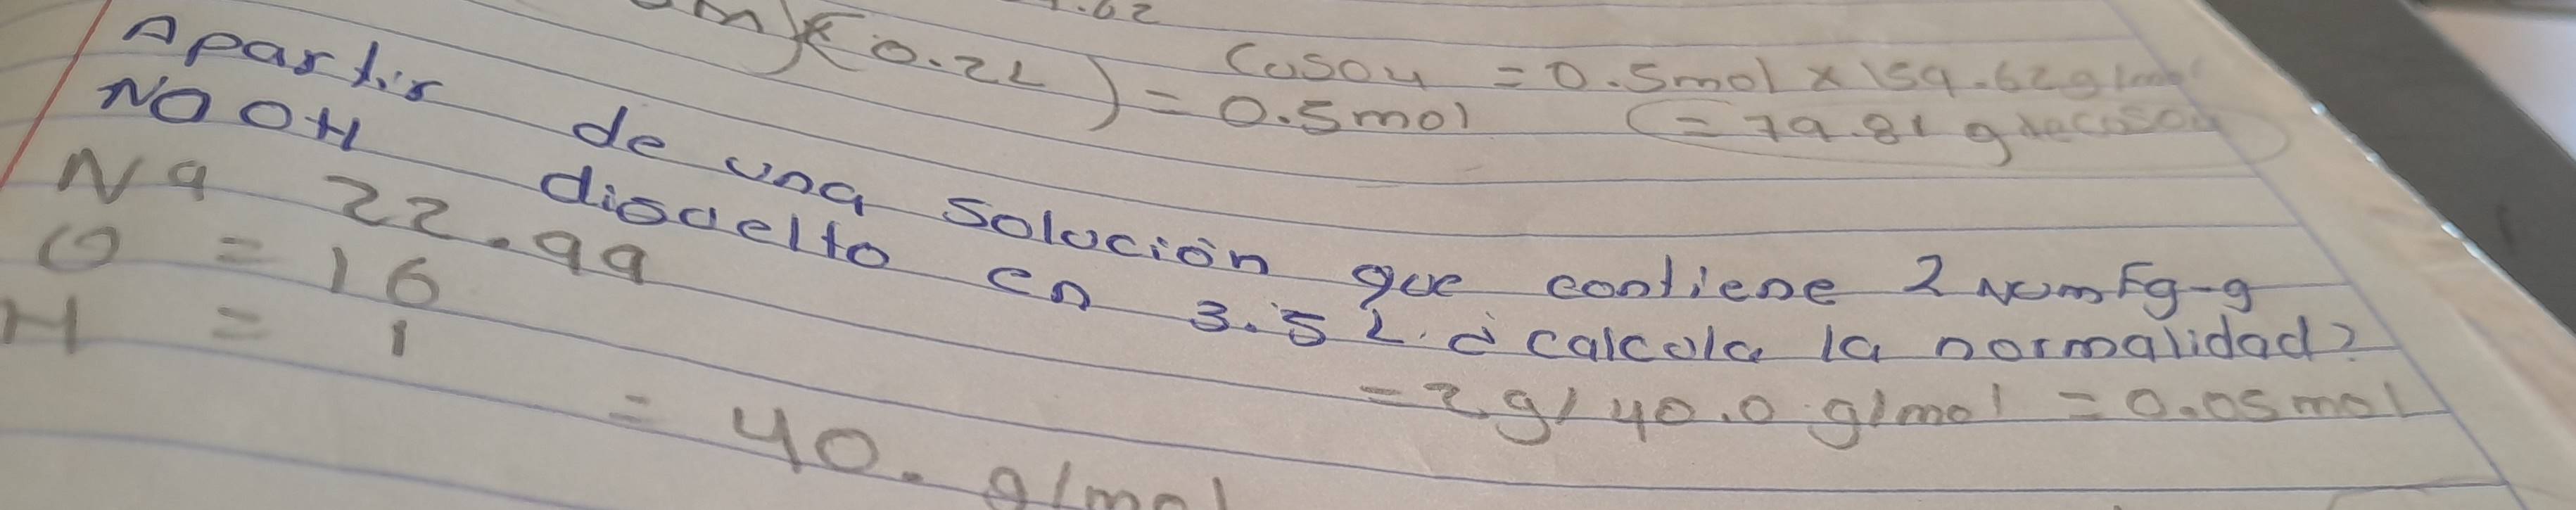 .62
m)(0.2L) = 0.5mol
CuSO4 = 0.5mol x 159.62g/mol
= 79.81 g de CuSO4
Apartir de una solución que contiene 2 Num Eg-g
NaOH disuelto en 3.5 L. ¿ calcula la normalidad?
Na 22.99
= 2g/40.0 g/mol = 0.05 mol
O = 16
H = 1
= 40. g/mol